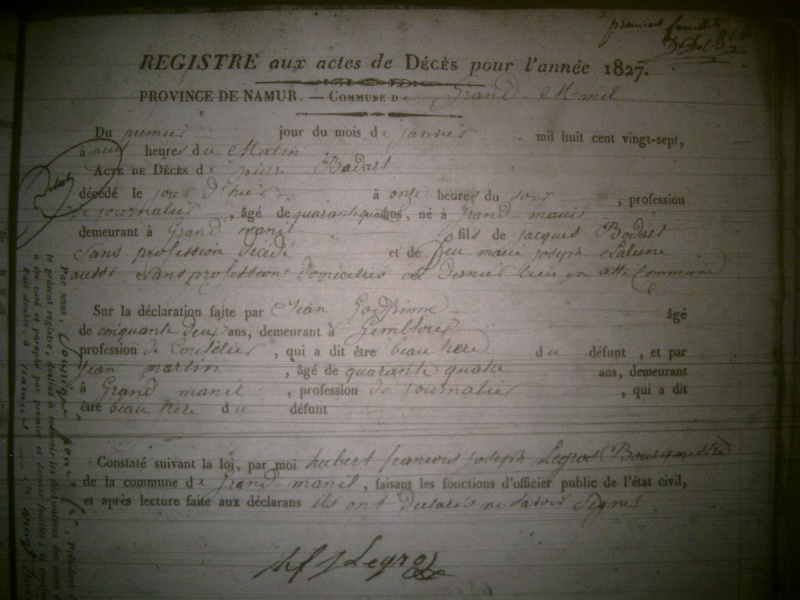 premier feuillet
REGISTRE aux actes de DÉCÈS pour l'année 1827.
PROVINCE DE NAMUR. — COMMUNE D e Grand Manil
Du premier jour du mois de janvier mil huit cent vingt-sept,
à neuf heures du Matin
ACTE DE DÉCÈS de pierre Bodart
décédé le jour d'hier à onze heures du soir , profession
de journalier , âgé de quarante quatre ans, né à Grand-manil
demeurant à Grand manil fils de jacques Bodart
Sans profession décédé et de feu marie joseph Lalune
aussi Sans profession domiciliés en dernier lieu en cette Commune
Sur la déclaration faite par Jean âgé
de cinquante deux ans, demeurant à Gembloux
profession de Coutelier , qui a dit être beau frere du défunt , et par
jean martin , âgé de quarante quatre ans, demeurant
à Grand manil , profession de journalier , qui a dit
être beau frere du défunt
Constaté suivant la loi, par moi hubert francois joseph Legros Bourgmestre
de la commune de Grand-manil , faisant les fonctions d'officier public de l'état civil,
et après lecture faite aux déclarans ils ont déclarés ne savoir Signer
h f j Legros
Par nous,
le présent registre, destiné à recevoir les déclarations des actes de
a été coté et paraphé par premier et dernier feuillet,
Fait double, à Namur